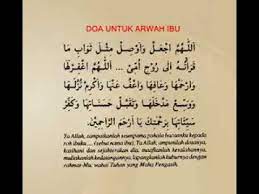 DOA UNTUK ARWAH IBU
اَللّٰهُمَّ اجْعَلْ وَاَوْصِلْ مِثْلَ ثَوَابِ مَا
قَرَأْتُهُ اِلَى رُوْحِ اُمِّيْ ... اَللّٰهُمَّ اغْفِرْلَهَا
وَارْحَمْهَا وَعَافِهَا وَاعْفُ عَنْهَا وَاَكْرِمْ نُزُلَهَا
وَوَسِّعْ مَدْخَلَهَا وَتَقَبَّلْ حَسَنَاتِهَا وَكَفِّرْ
سَيِّئَاتِهَا بِرَحْمَتِكَ يَا اَرْحَمَ الرَّاحِمِيْنَ.
Ya Allah, sampaikanlah seumpama pahala bacaanku kepada
roh ibuku... (sebut nama ibu). Ya Allah, ampunilah dosanya,
kasihani dan sejahterakan dia, maafkanlah kesalahannya,
muliakanlah kedatangannya, lapangkanlah kuburnya dengan
rahmat-Mu, wahai Tuhan yang Maha Pengasih.